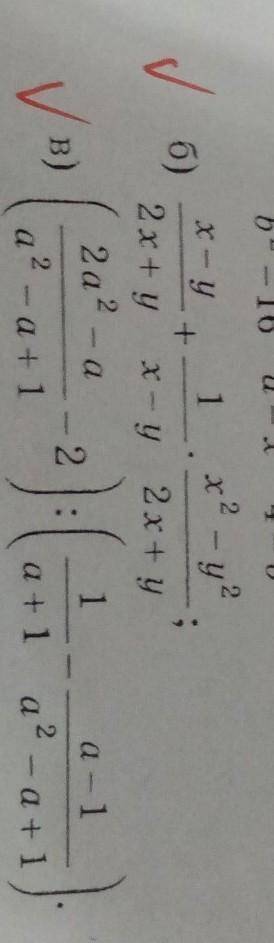 б) \frac{x-y}{2x+y} + \frac{1}{x-y} \cdot \frac{x^2-y^2}{2x+y};
в) \left( \frac{2a^2-a}{a^2-a+1} - 2 \right) : \left( \frac{1}{a+1} - \frac{a-1}{a^2-a+1} \right).